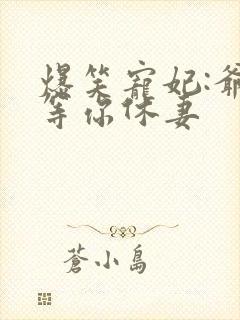 爆笑寵妃:爺
等你休妻
蒼小島